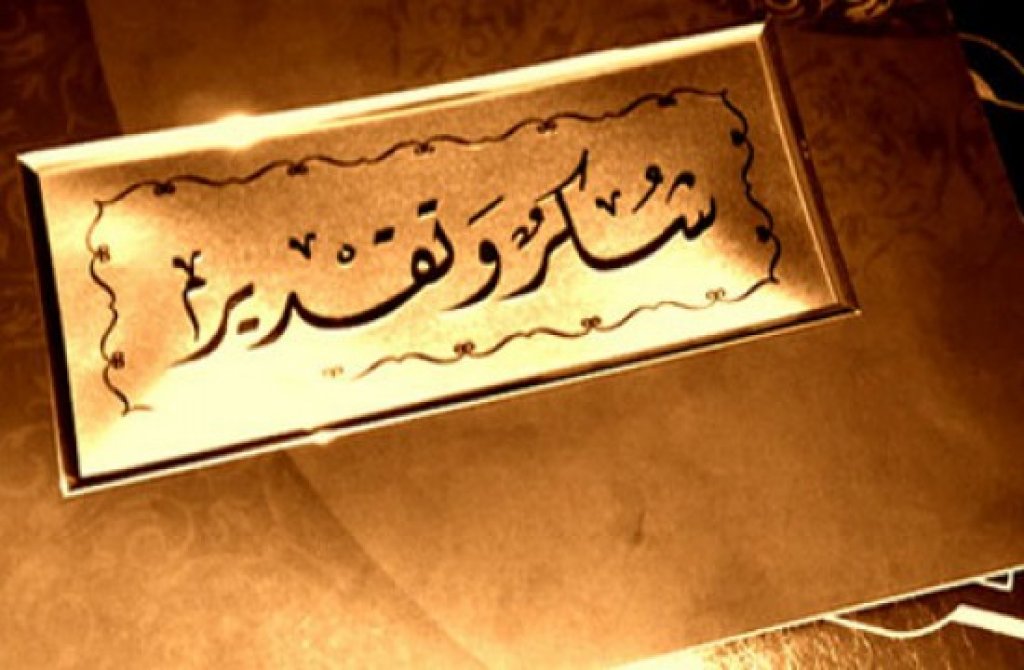 شُكرٌ وَتقْدير